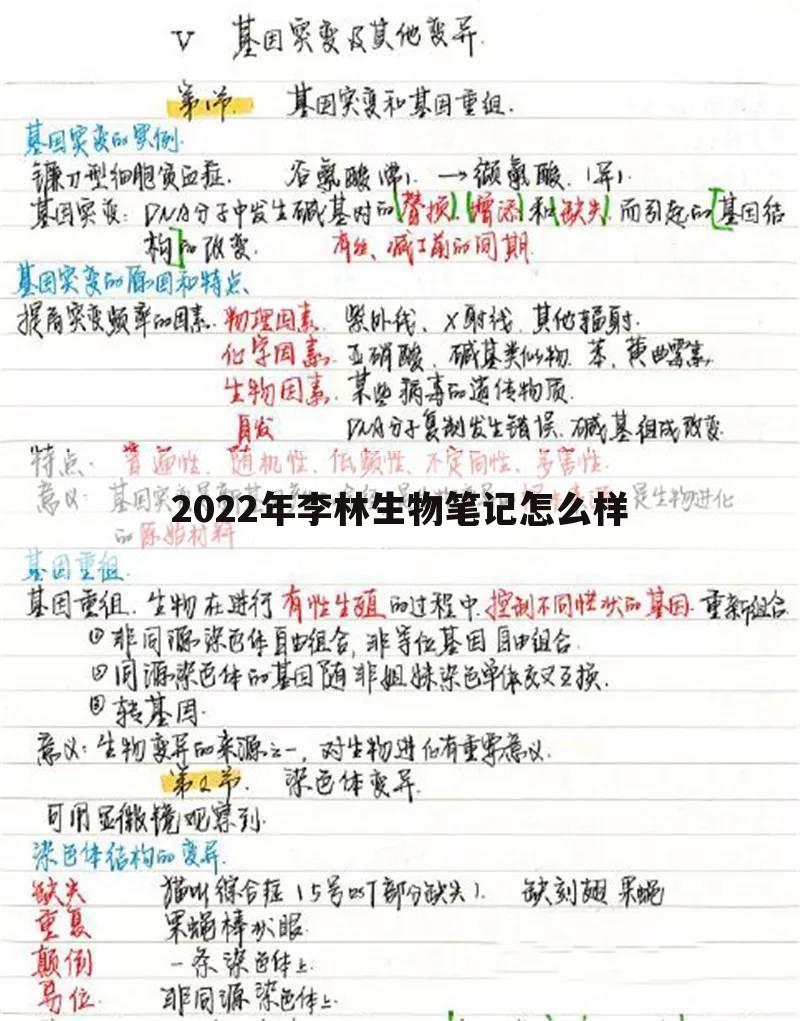 V 基因突变及其他变异.
第1节. 基因突变和基因重组.
基因突变的实例.
镰刀型细胞贫血症. 谷氨酸(常). → 缬氨酸.(异).
基因突变: DNA分子中发生碱基对的(替换)(增添)和(缺失)而引起的[基因结
构]的改变. 有丝、减Ⅰ前的间期.
基因突变的原因和特点、
提高突变频率的因素. 物理因素. 紫外线、X射线. 其他辐射.
化学因素. 亚硝酸、碱基类似物. 苯. 黄曲霉素.
生物因素. 某些病毒的遗传物质.
自发 DNA分子复制发生错误. 碱基组成改变.
特点: 普遍性、随机性、低频性、不定向性、多害性.
2022年李林生物笔记怎么样
意义: 基因突变是 是生物进化
的原始材料
基因重组.
基因重组. 生物在进行有性生殖的过程中.控制不同性状的基因.重新组合
①非同源染色体自由组合,非等位基因自由组合.
②同源染色体的基因随非姐妹染色单体交叉互换.
③转基因.
意义: 生物变异的来源之一, 对生物进化有重要意义.
第2节. 染色体变异.
可用显微镜观察到.
染色体结构的变异.
缺失 猫叫综合征(5号 部分缺失). 缺刻翅 果蝇
重复 果蝇棒状眼.
颠倒 一条染色体上.
易位. 非同源染色体上.